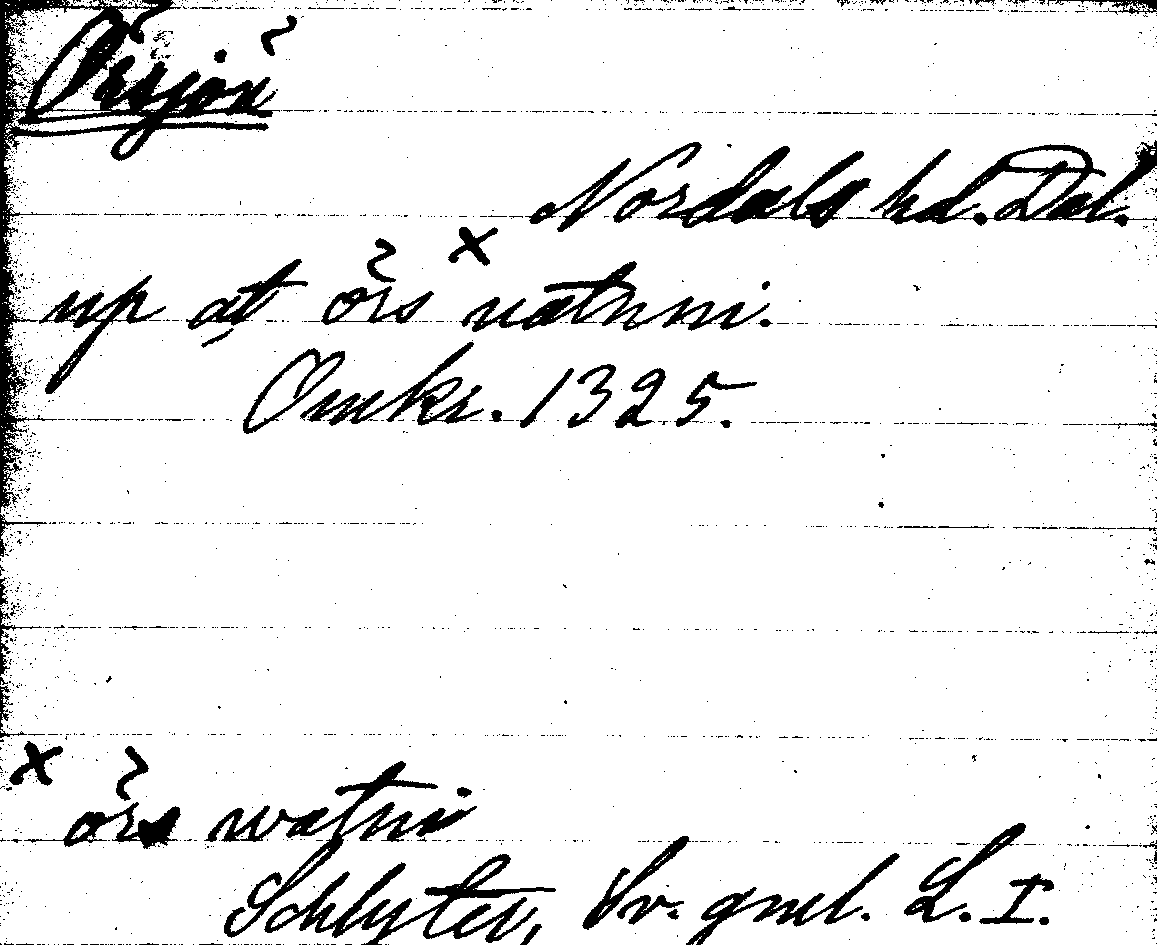 Örsjön
Nordals hd. Dal.
up at örs uatnni.
Omkr. 1325.
x örs watni
Schlyter, Sv. gml. L. I.